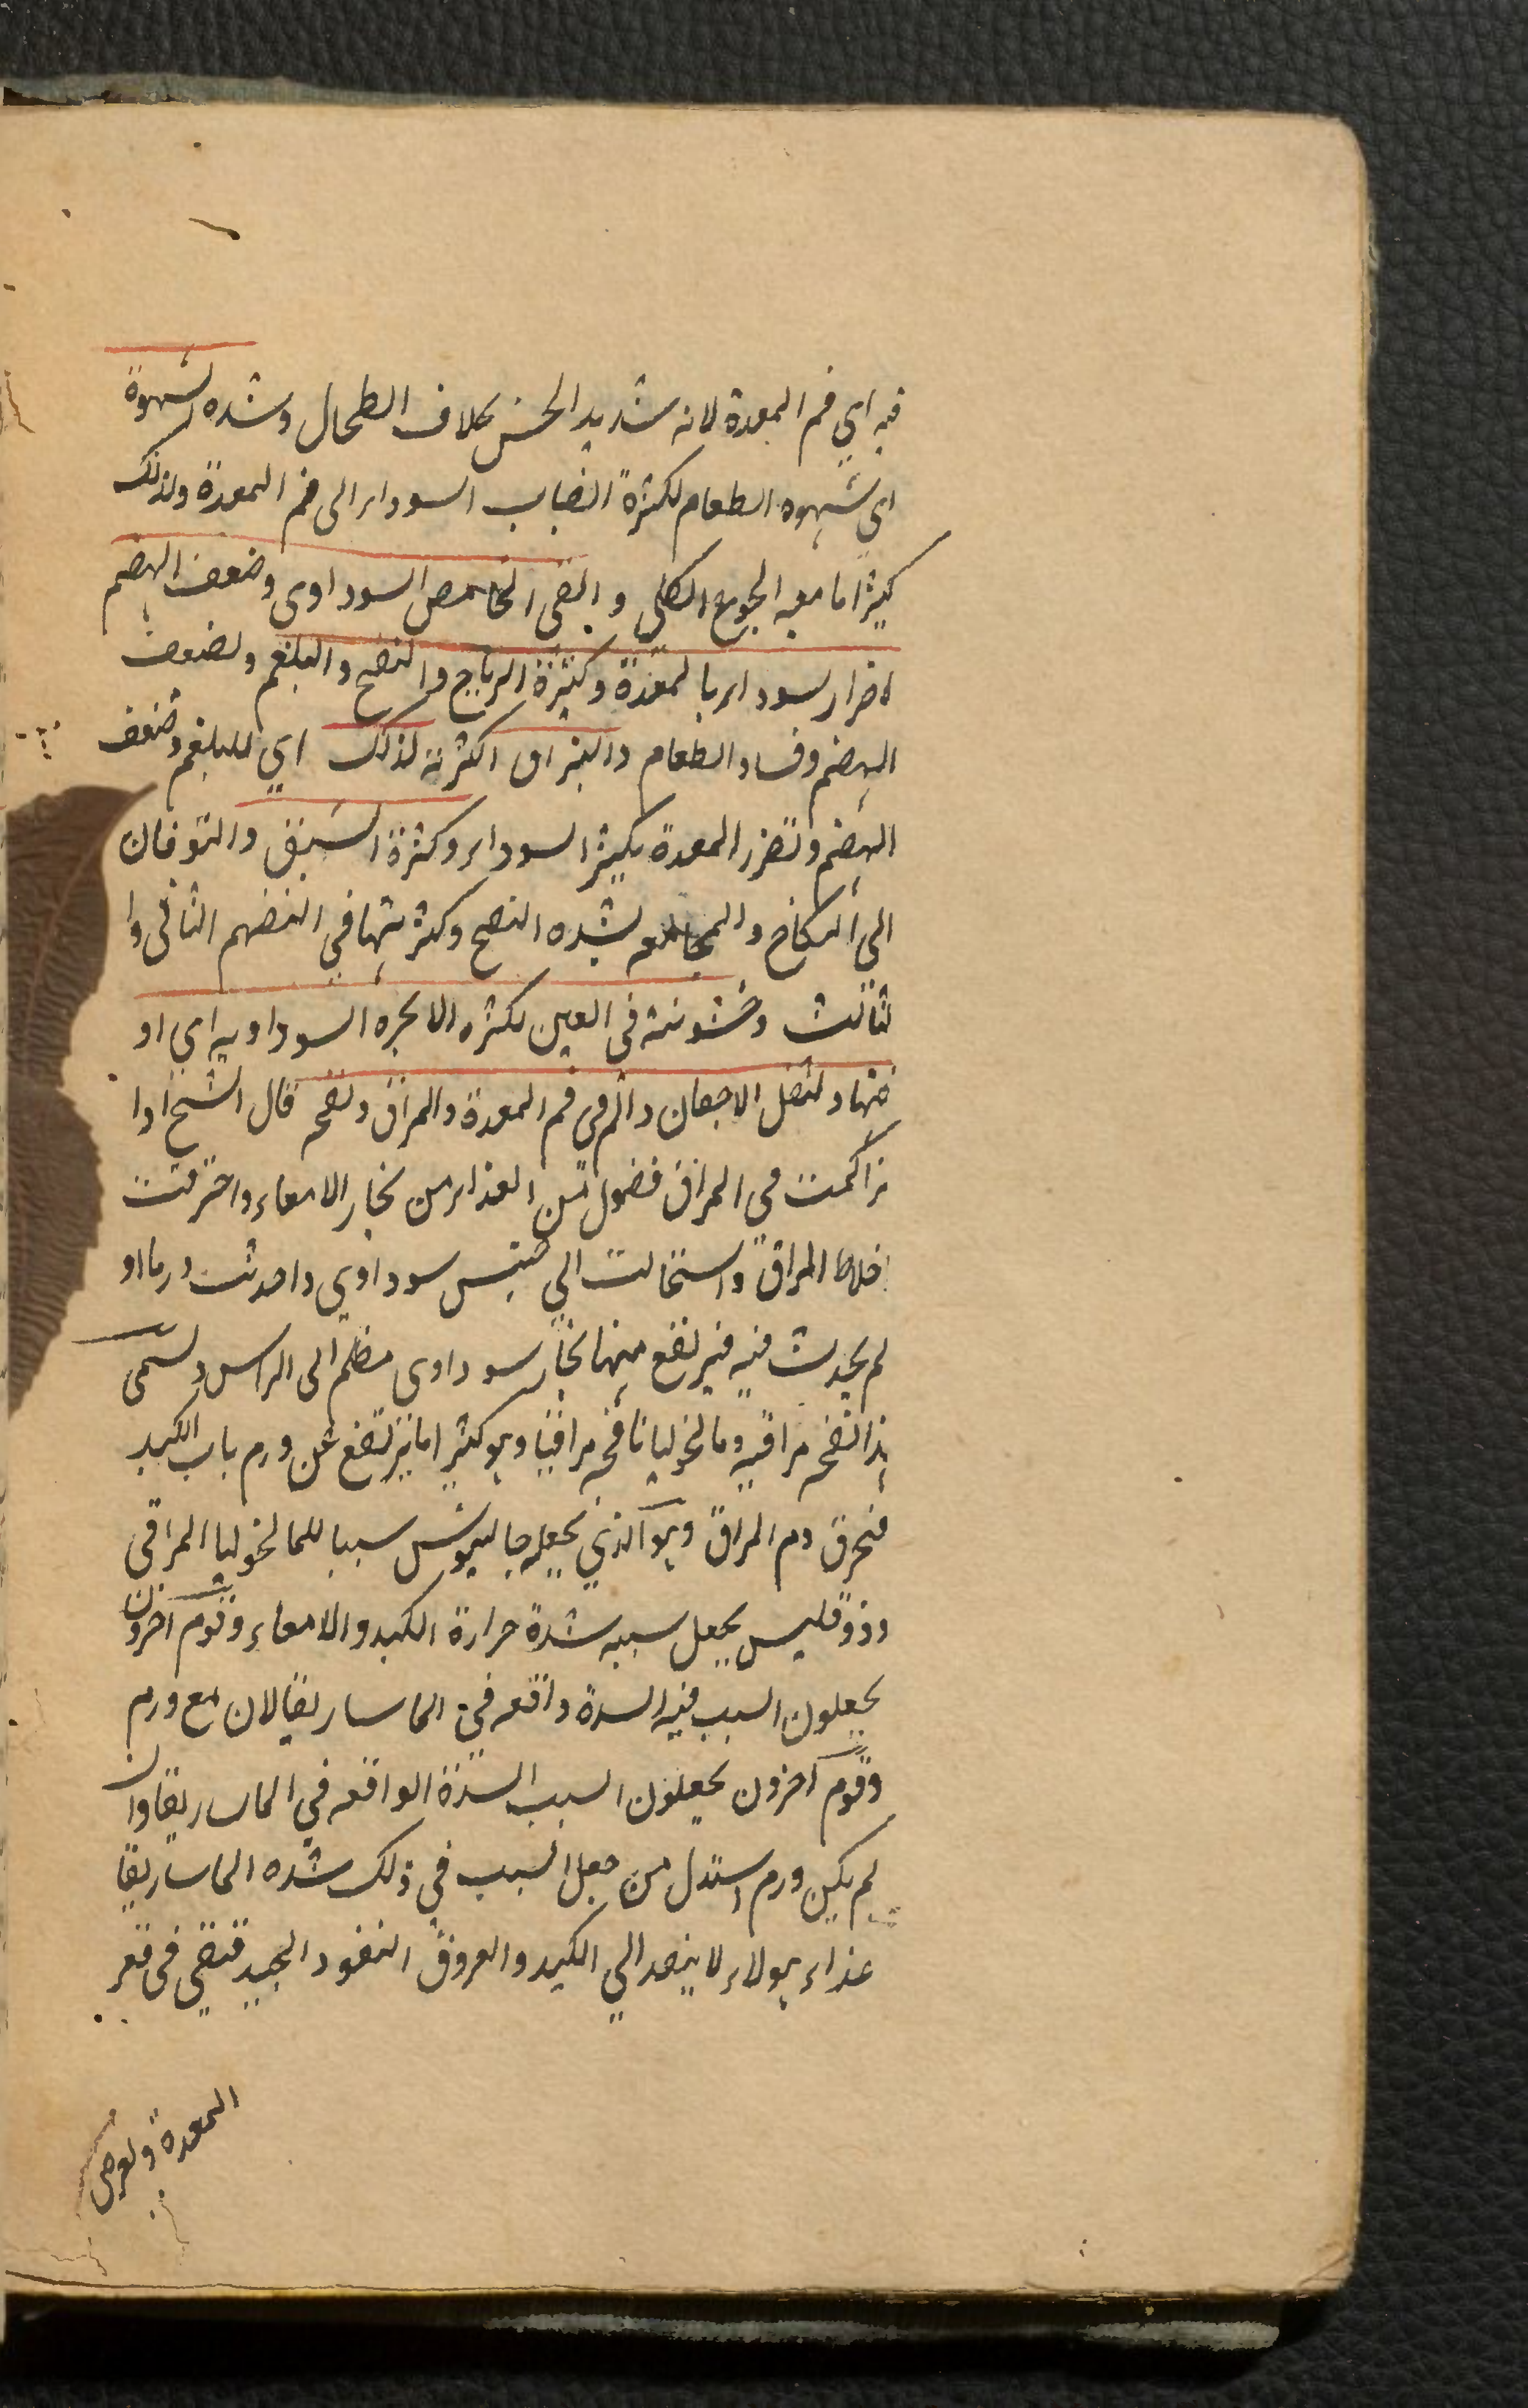 فيه اي فم المعدة لانه شديد الحس بخلاف الطحال وشده الشهوة
اي شهوه الطعام لكثرة انصباب السوداء الى فم المعدة ولذلك
كثيرا ما معه الجوع الكلبي و القى الحامض السوداوى وضعف الهضم
لاضرار السوداء بالمعدة وكثرة الرياح والنفخ والبلغم ولضعف
الهضم وفساد الطعام والبزاق اكثرته لذلك اي للبلغم وضعف
الهضم وتضرر المعدة بكثير السوداء وكثرة الشبق والتوقان
الى النكاح و المجامعه لشده النفخ وكثرتها في الهضم الثانى وا
لثالث وخشونته فى العين لكثره الابخره السوداويه اي او
فيها و لثقل الاجفان والم فى فم المعدة والمراق ونفخه قال الشيخ اذا
تراكمت في المراق فضول من الغذاء من بخار الامعاء واحترقت
اخلاط المراق واستحالت الي جنس سوداوي واحدثت ورما او
لم يحدث فيه فيرتفع منها بخار سوداوى مظلم الى الراس وسمى
هذا نفخه مراقيه ومالنخوليا نافخه مراقيا وهو كثير اما يرتفع عن ورم باب الكبد
فيحرق دم المراق وهو الذي يجعله جالينوس سببا للمالنخوليا المراقى
وذوقليس يجعل سببه شدة حرارة الكبد والامعاء وقوم آخرون
يجعلون السبب فيه السدة واقعه في الماساريقا لان مع ورم
وقوم آخرون يجعلون السبب السدة الواقعه في الماساريقا وان
لم يكن ورم استدل من جعل السبب في ذلك شده الماساريقا
غذاء هولاء لا ينفد الي الكبد والعروق النفود الجيد فتبقى فى قعر
المعدة ولعرض